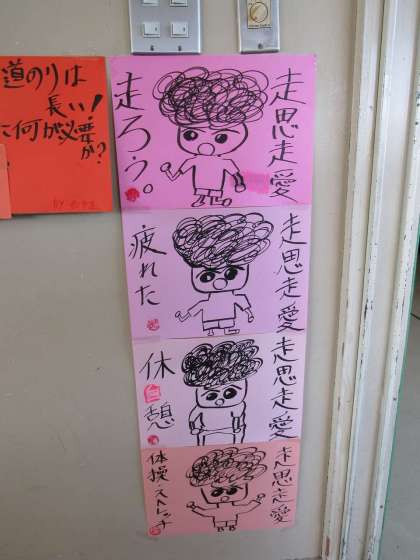 道のりは
長い!
に何が必要
か?
走思走愛
走ろう。
走思走愛
疲れた
走思走愛
休憩
走思走愛
体操・ストレッチ